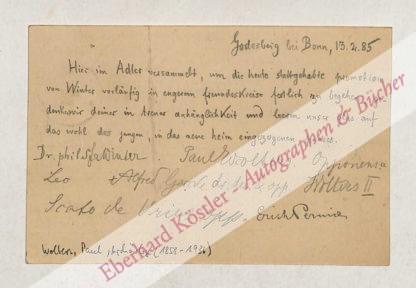 Godesberg bei Bonn, 13.2.85
Hier im Adler versammelt, um die heute stattgehabte promotion
von Winter vorläufig in engerem freundeskreise festlich zu begehen
denken wir deiner in treuer anhänglichkeit und leeren unser glas auf
das wohl des jungen, in das neue heim eingezogenen
Dr. phil Winter Paul Wolters Opponens
Leo Alfred opp. Wolters II
Scato de Vries opp. Erich Pernice
Wolters, Paul (1858-1936)
Eberhard Köstler - Autographen & Bücher